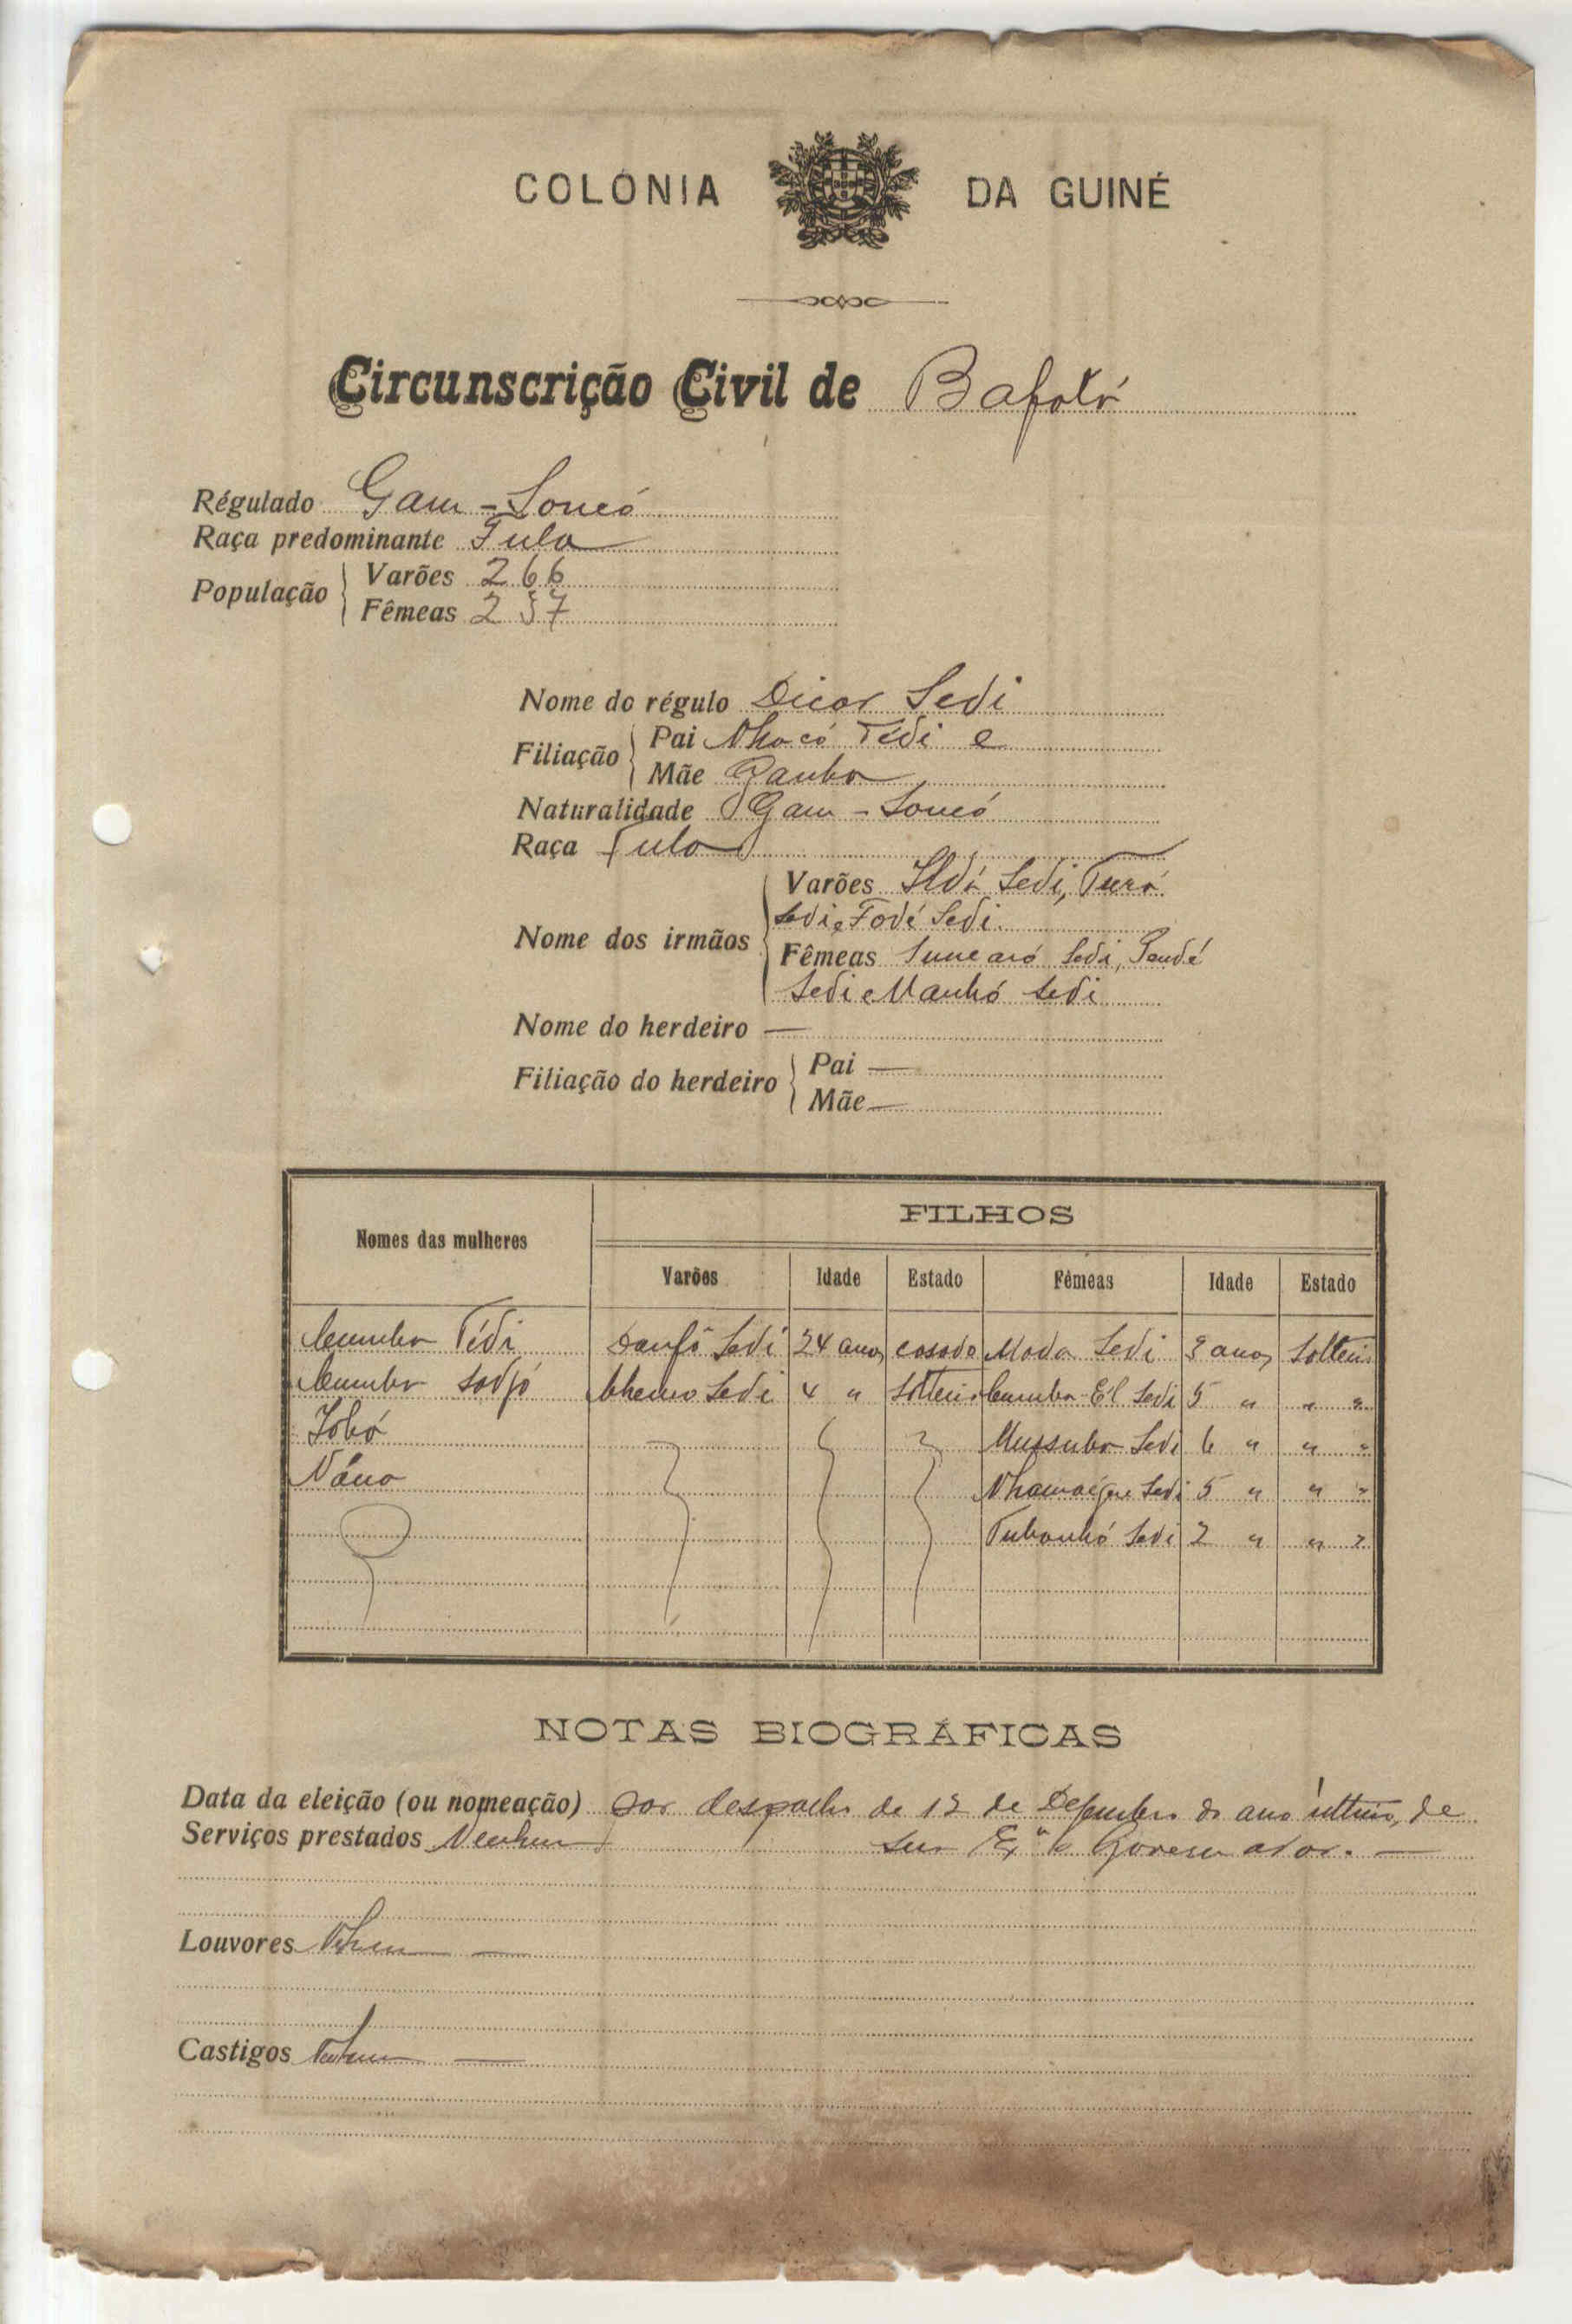 COLÓNIA DA GUINÉ
Circunscrição Civil de Bafatá
Régulado Gam-Soncó
Raça predominante Fula
População
Varões 266
Fêmeas 237
Nome do régulo Dicor Sedi
Filiação
Pai Nhacó Tédi e
Mãe
Naturalidade Gam-Soncó
Raça Fula
Nome dos irmãos
Varões Sedi, Turá
Sedi e Fodé Sedi.
Fêmeas Sedi,
Sedi e Manhó Sedi
Nome do herdeiro —
Filiação do herdeiro
Pai —
Mãe —
Nomes das mulheres
FILHOS
Varões Idade Estado Fêmeas Idade Estado
Cumba Tédi Danfô Sedi 24 anos casado Moda Sedi 3 anos solteira
Cumba Sadjó Sedi 4 " solteiro Cumba El Sedi 5 " " "
Jobó Mussuba Sedi 6 " " "
Náno Sedi 5 " " "
Tubanhó Sedi 2 " " "
NOTAS BIOGRÁFICAS
Data da eleição (ou nomeação) por despacho de 12 de Dezembro do ano último, de
Serviços prestados Nenhum Sua Exª o Governador. —
Louvores Nenhum —
Castigos Nenhum —